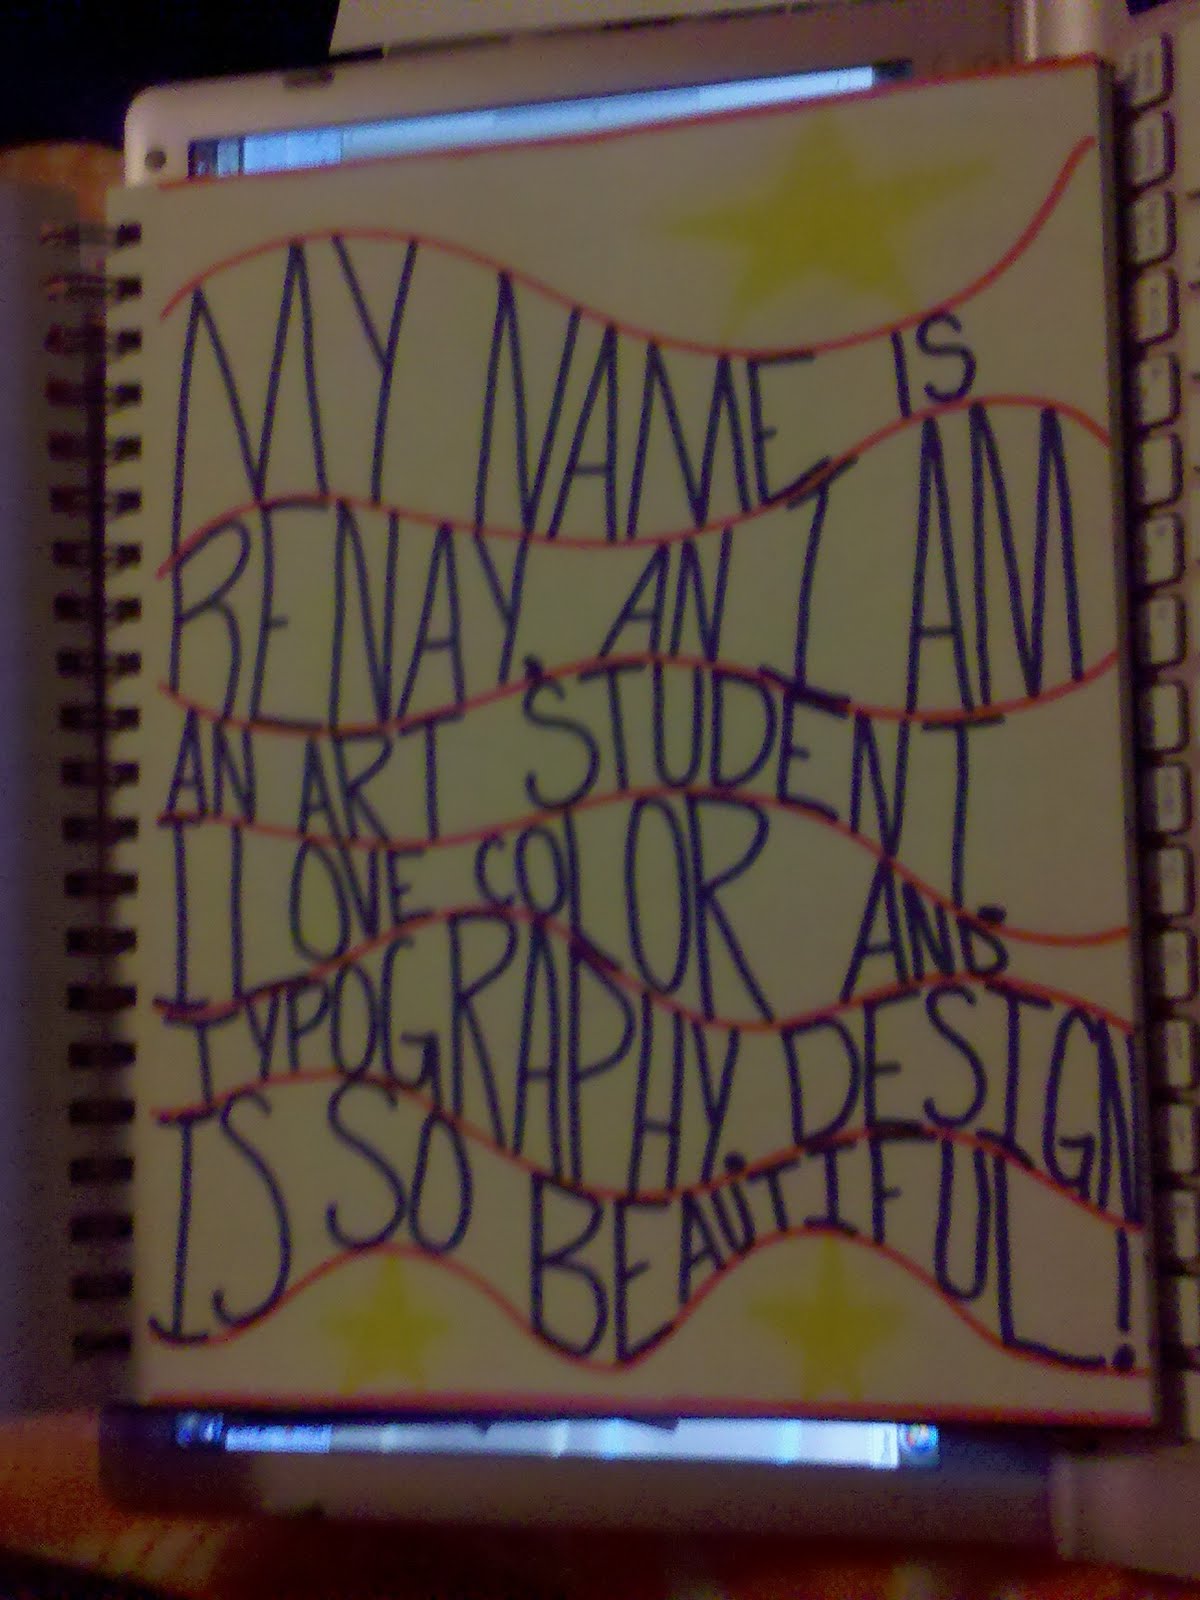 MY NAME IS
RENAY AN I AM
AN ART STUDENT.
I LOVE COLOR AND
TYPOGRAPHY. DESIGN
IS SO BEAUTIFUL!